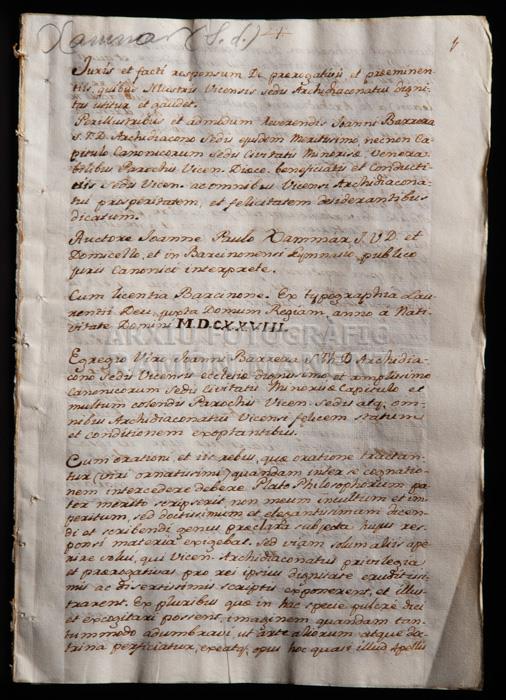 Xammar (S. d.) 4
Juris et facti responsum De prerogativis et preeminen-
tiis, quibus Illustris Vicensis Sedis Archidiaconatus digni-
tas utitur et gaudet.
Perillustribus et admodum Reverendis Joanni Barrera
S.T.D. Archidiacono Sedis ejusdem Meritissimo, necnon Ca-
pitulo Canonicorum Sedis Civitatis Minorisæ, Venera-
bilibus Parochis Vicen. Dioce. beneficiatis et Conducti-
tiis Sedis Vicen. ac omnibus Vicensi Archidiacona-
tui prosperitatem, et felicitatem desiderantibus
dicatum.
Auctore Joanne Paulo Xammar, J.V.D. et
Domicello, et in Barcinonensi Lymnasio publico
juris Canonici interprete.
Cum licentia Barcinone. Ex typographia Lau-
rentii Deu, juxta Domum Regiam, anno à Nati-
vitate Domini M.DCXXVIII.
ARXIU FOTOGRÀFIC
Egregio Viro Joanni Barrera S.Th.D. Archidia-
cono Sedis Vicensis ecclesiæ dignissimo et amplissimo
Canonicorum Sedis Civitatis Minorisæ Capitulo et
multum colendis Parochis Vicen. Sedis atq. om-
nibus Archidiaconatus Vicensi felicem statum
et conditionem exoptantibus.
Cum orationi, et iis rebus, quæ oratione tractan-
tur (viri ornatissimi) quandam inter se cognatio-
nem intercedere debere Plato Philosophorum pa-
ter merito scripserit, non meum incultum et im-
peritum, sed doctissimum et elegantissimum dicen-
di et scribendi genus præclara subjecta hujus res-
ponsi materia exigebat. Sed viam solum aliis ape-
rire volui, qui Vicen. Archidiaconatus privilegia
et prerogativas pro rei ipsius dignitate eruditissi-
mis ac disertissimis scriptis exponerent, et illus-
trarent. Ex pluribus quæ in hac specie pulcre dici
et excogitari possent, imaginem quandam tan-
tummodo adumbravi, ut arte aliorum atque doc-
trina perficiatur, exeatq. opus hoc quasi illud Apellis